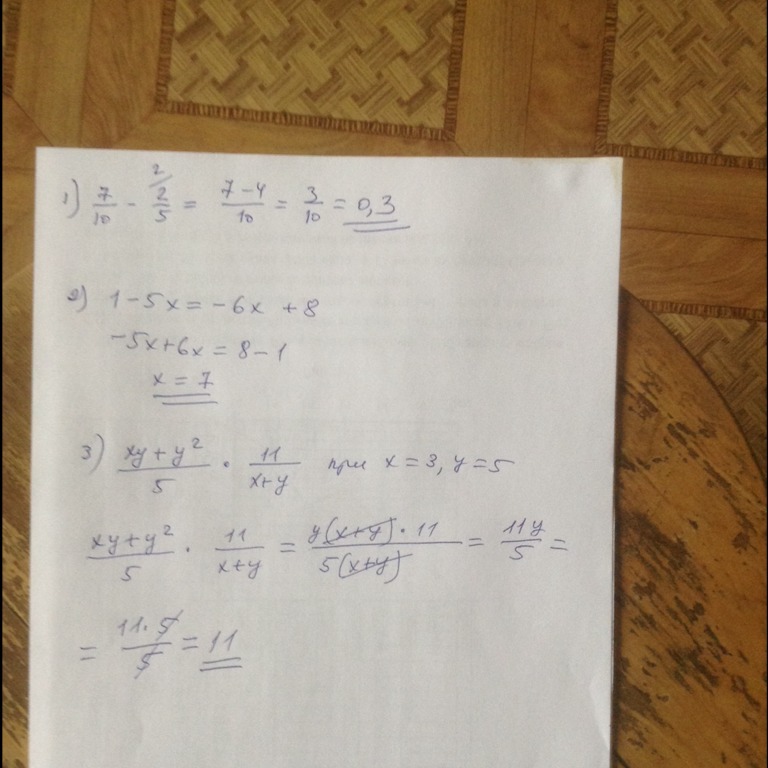 1) 7/10 - 2/5 (2/) = (7-4)/10 = 3/10 = 0,3
2) 1-5x = -6x +8
-5x+6x = 8-1
x = 7
3) (xy+y²)/5 · 11/(x+y) при x=3, y=5
(xy+y²)/5 · 11/(x+y) = (y(x+y)·11)/(5(x+y)) = 11y/5 =
= (11·5)/5 = 11